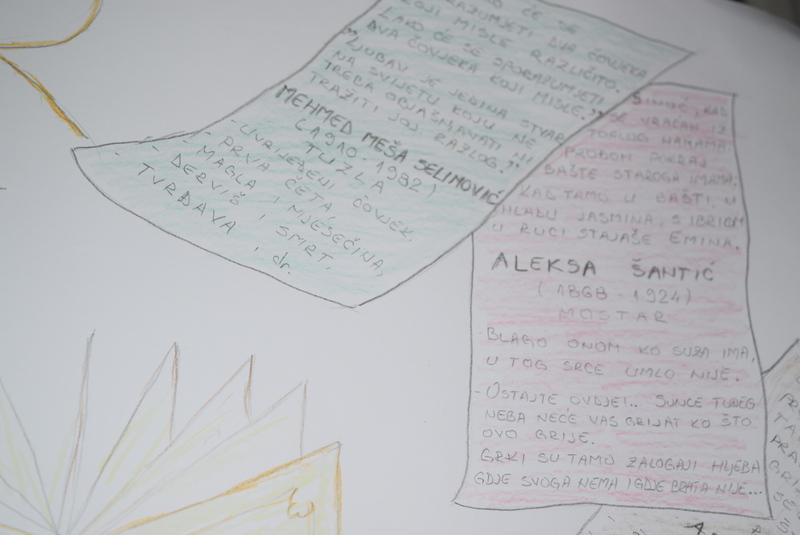 ĆE SE
SPORAZUMJETI DVA ČOVJEKA
KOJI MISLE RAZLIČITO.
LAKO ĆE SE SPORAZUMJETI
DVA ČOVJEKA KOJI MISLE."
"LJUBAV JE JEDINA STVAR
NA SVIJETU KOJU NE
TREBA OBJAŠNJAVATI NI
TRAŽITI JOJ RAZLOG."
MEHMED MEŠA SELIMOVIĆ
(1910-1982)
TUZLA
- UVRIJEĐENI ČOVJEK,
- PRVA ČETA,
- MAGLA I MJESEČINA,
- DERVIŠ I SMRT,
- TVRĐAVA, i dr.
SINOĆ, KAD
SE VRAĆAH IZ
TOPLOG HAMAMA
PROĐOH POKRAJ
BAŠTE STAROGA IMAMA;
KAD TAMO U BAŠTI, U
HLADU JASMINA, S IBRIKOM
U RUCI STAJAŠE EMINA.
ALEKSA ŠANTIĆ
(1868-1924)
MOSTAR
- BLAGO ONOM KO SUZA IMA,
U TOG SRCE UMLO NIJE.
- OSTAJTE OVDJE!.. SUNCE TUĐEG
NEBA NEĆE VAS GRIJAT KO ŠTO
OVO GRIJE.
GRKI SU TAMO ZALOGAJI HLJEBA
GDJE SVOGA NEMA I GDJE BRATA NIJE...